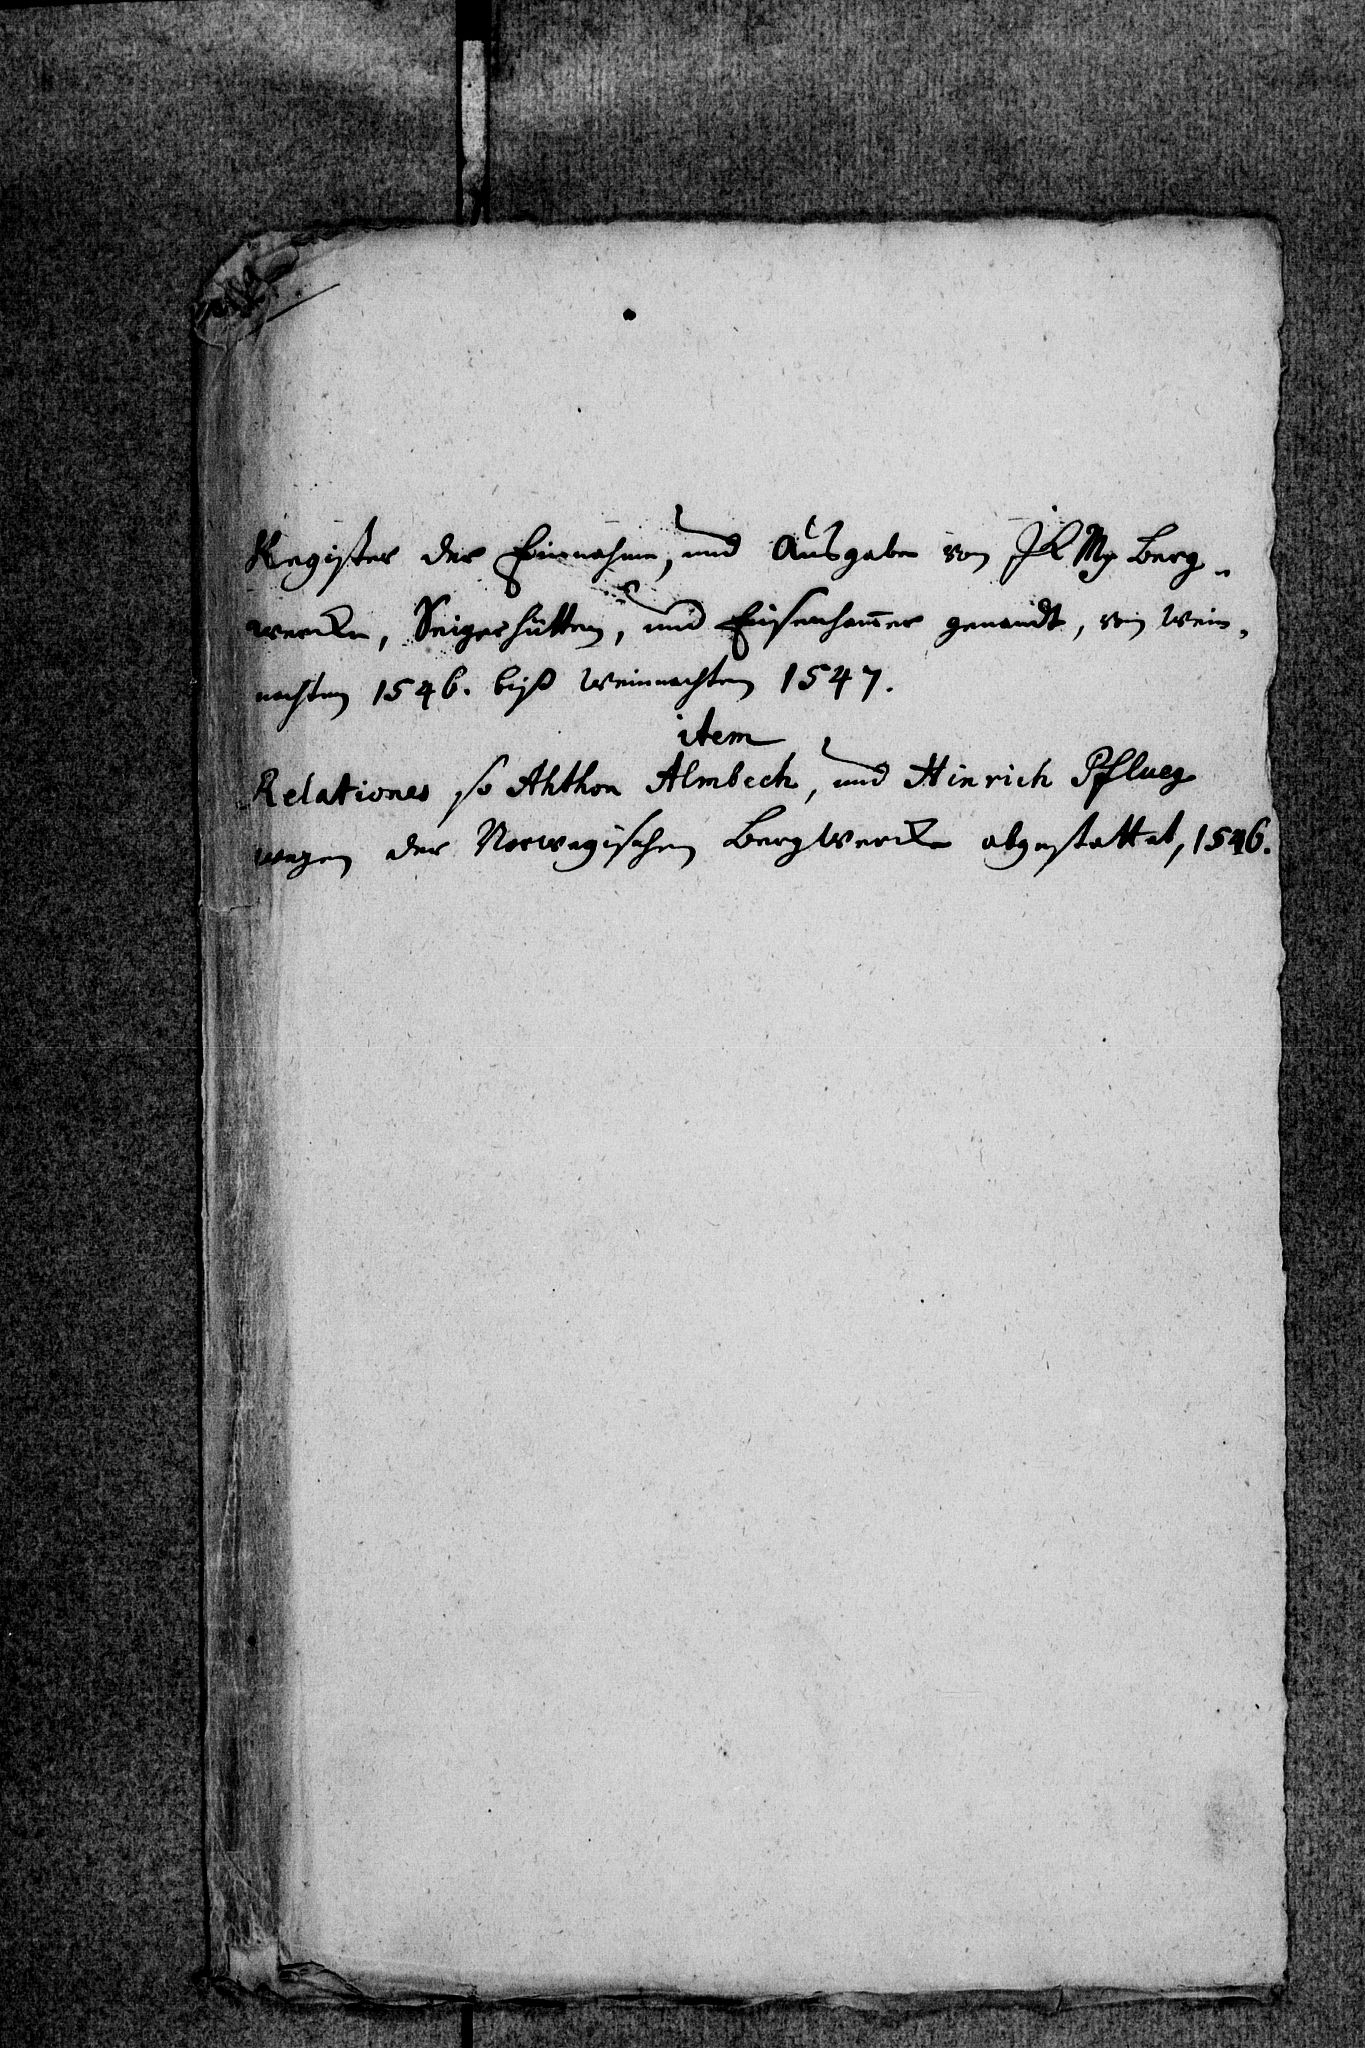 Register der Einnahme, und Ausgabe von JK My Berg-
wercke, Seigerhütten, und Eisenham̄er genandt, von Wein-
nachten 1546. biß Weinnachten 1547.
item
Relationes so Ahthon Almbech, und Hinrich Pflueg
wegen der Norwegischen Bergwercke abgestattet, 1546.